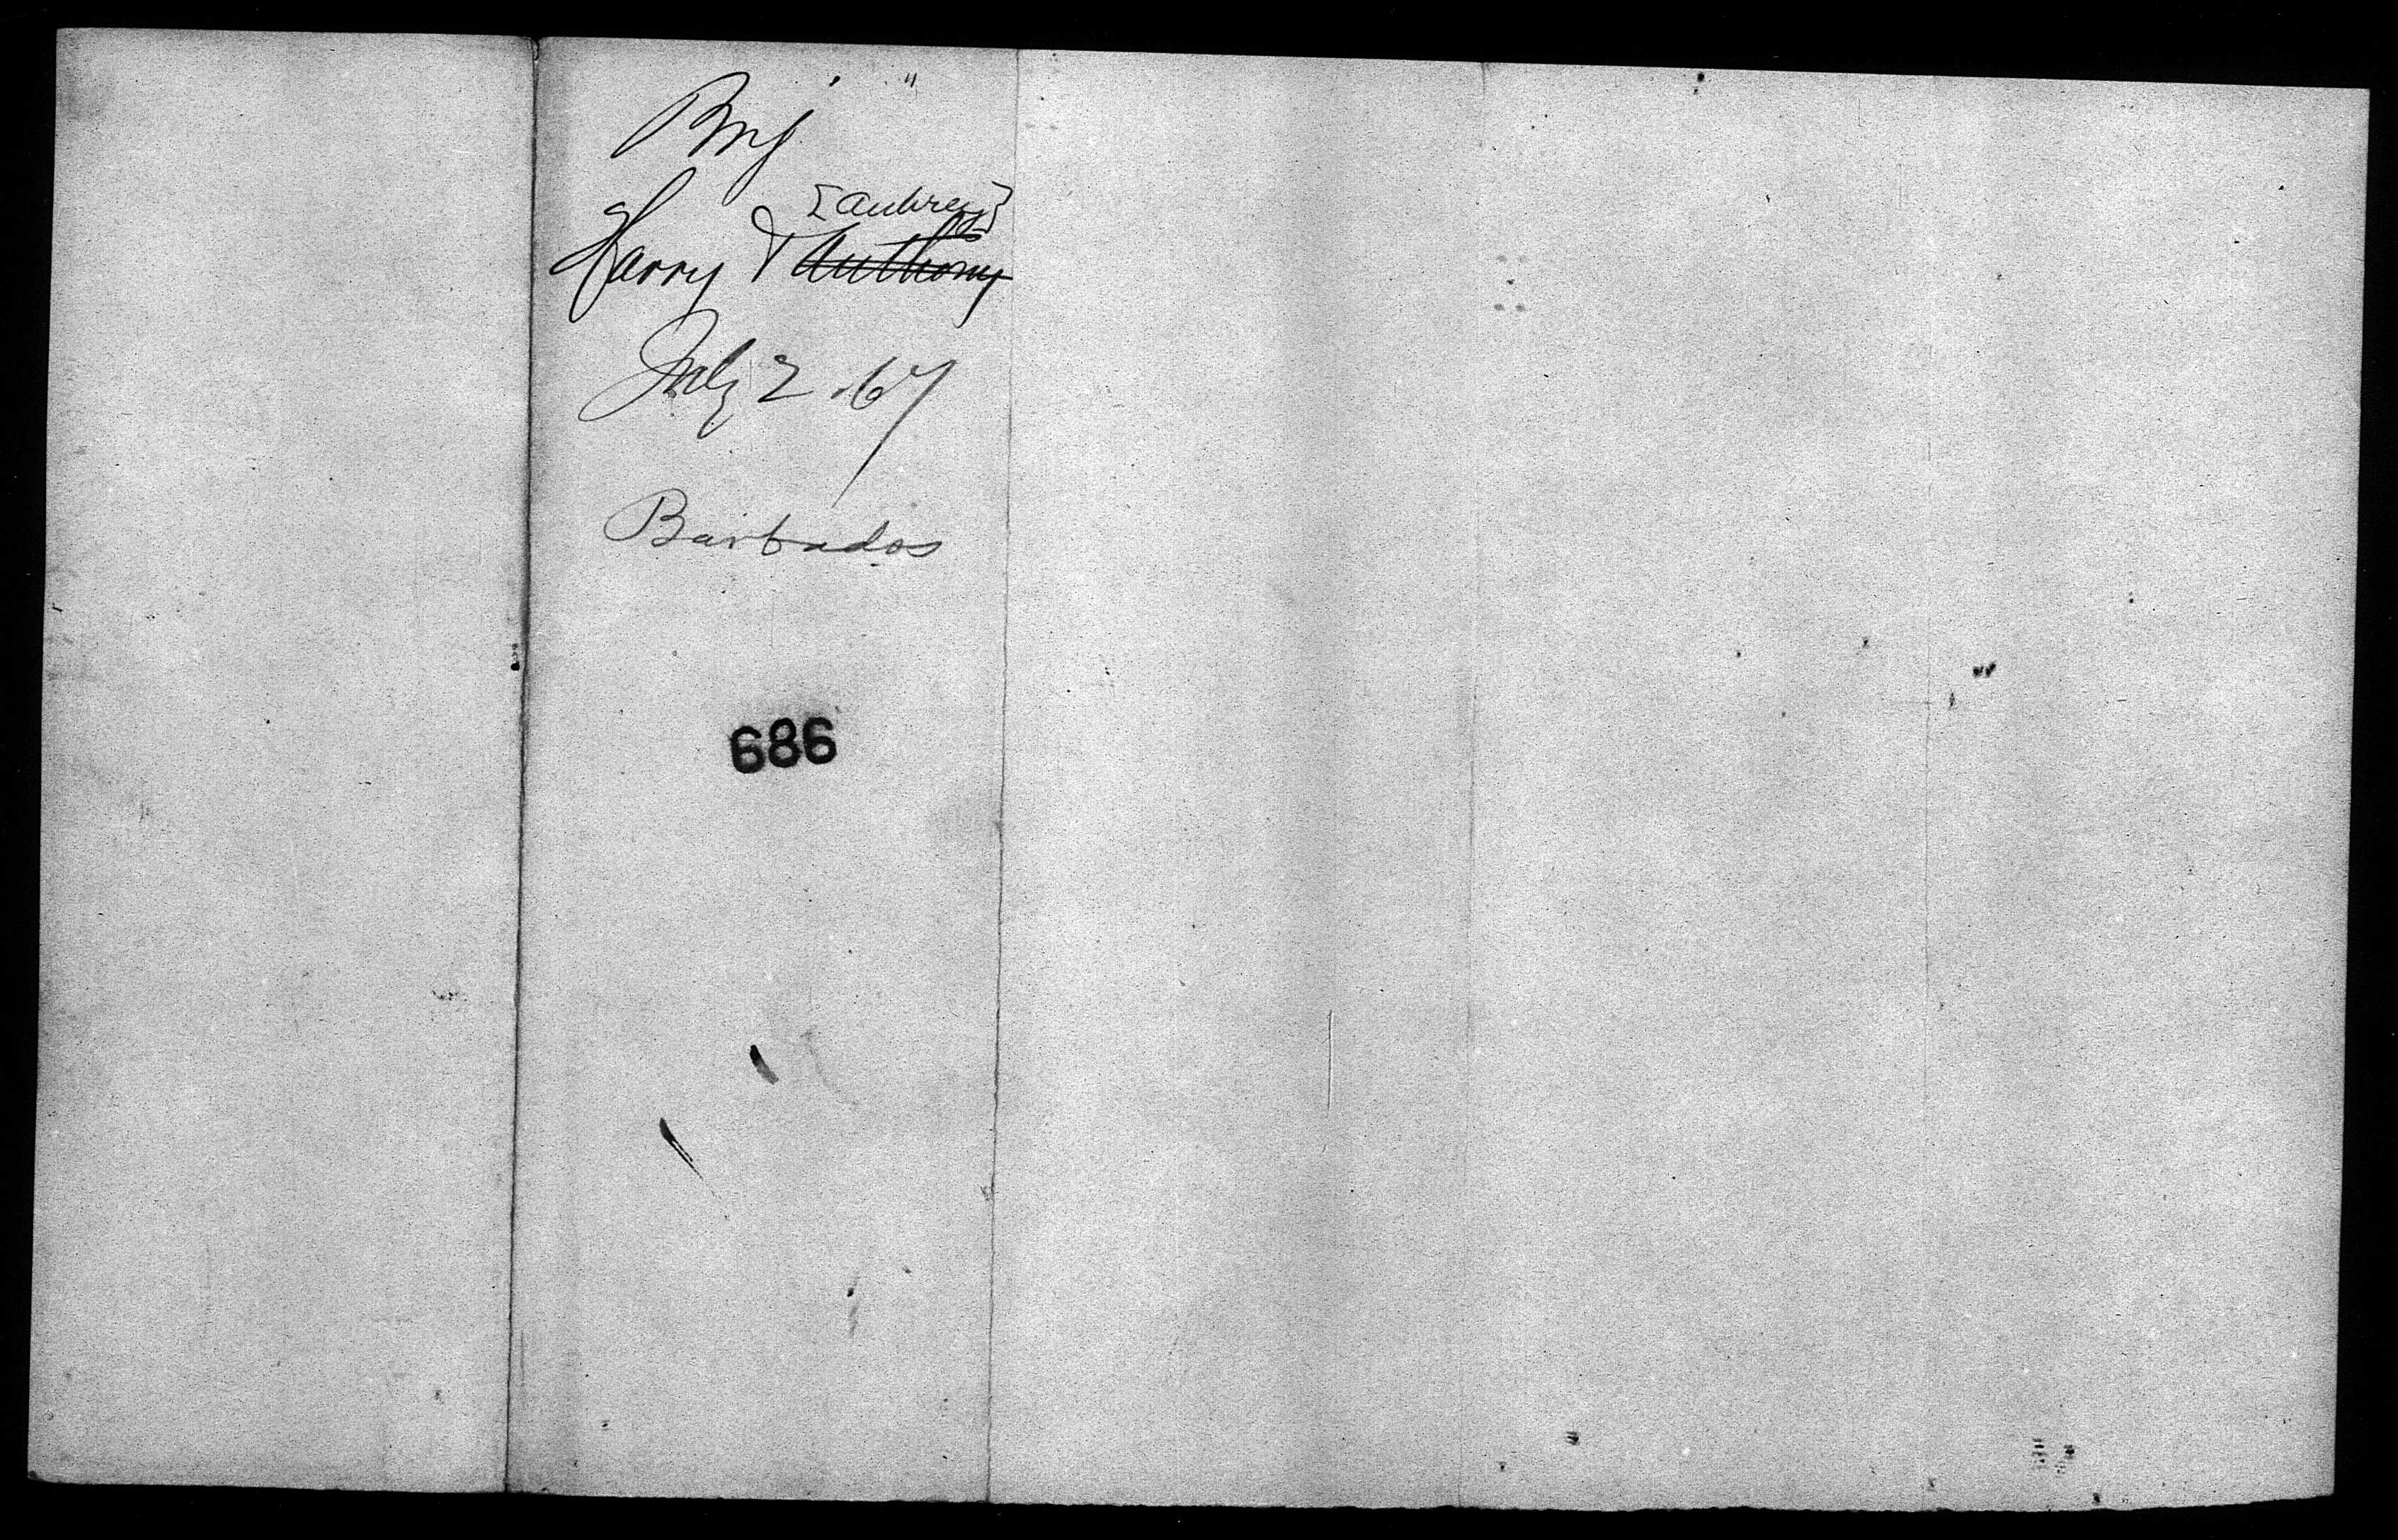 Brig
[Aubrey]
Harry & Anthony
July 2. 67
Barbados
686